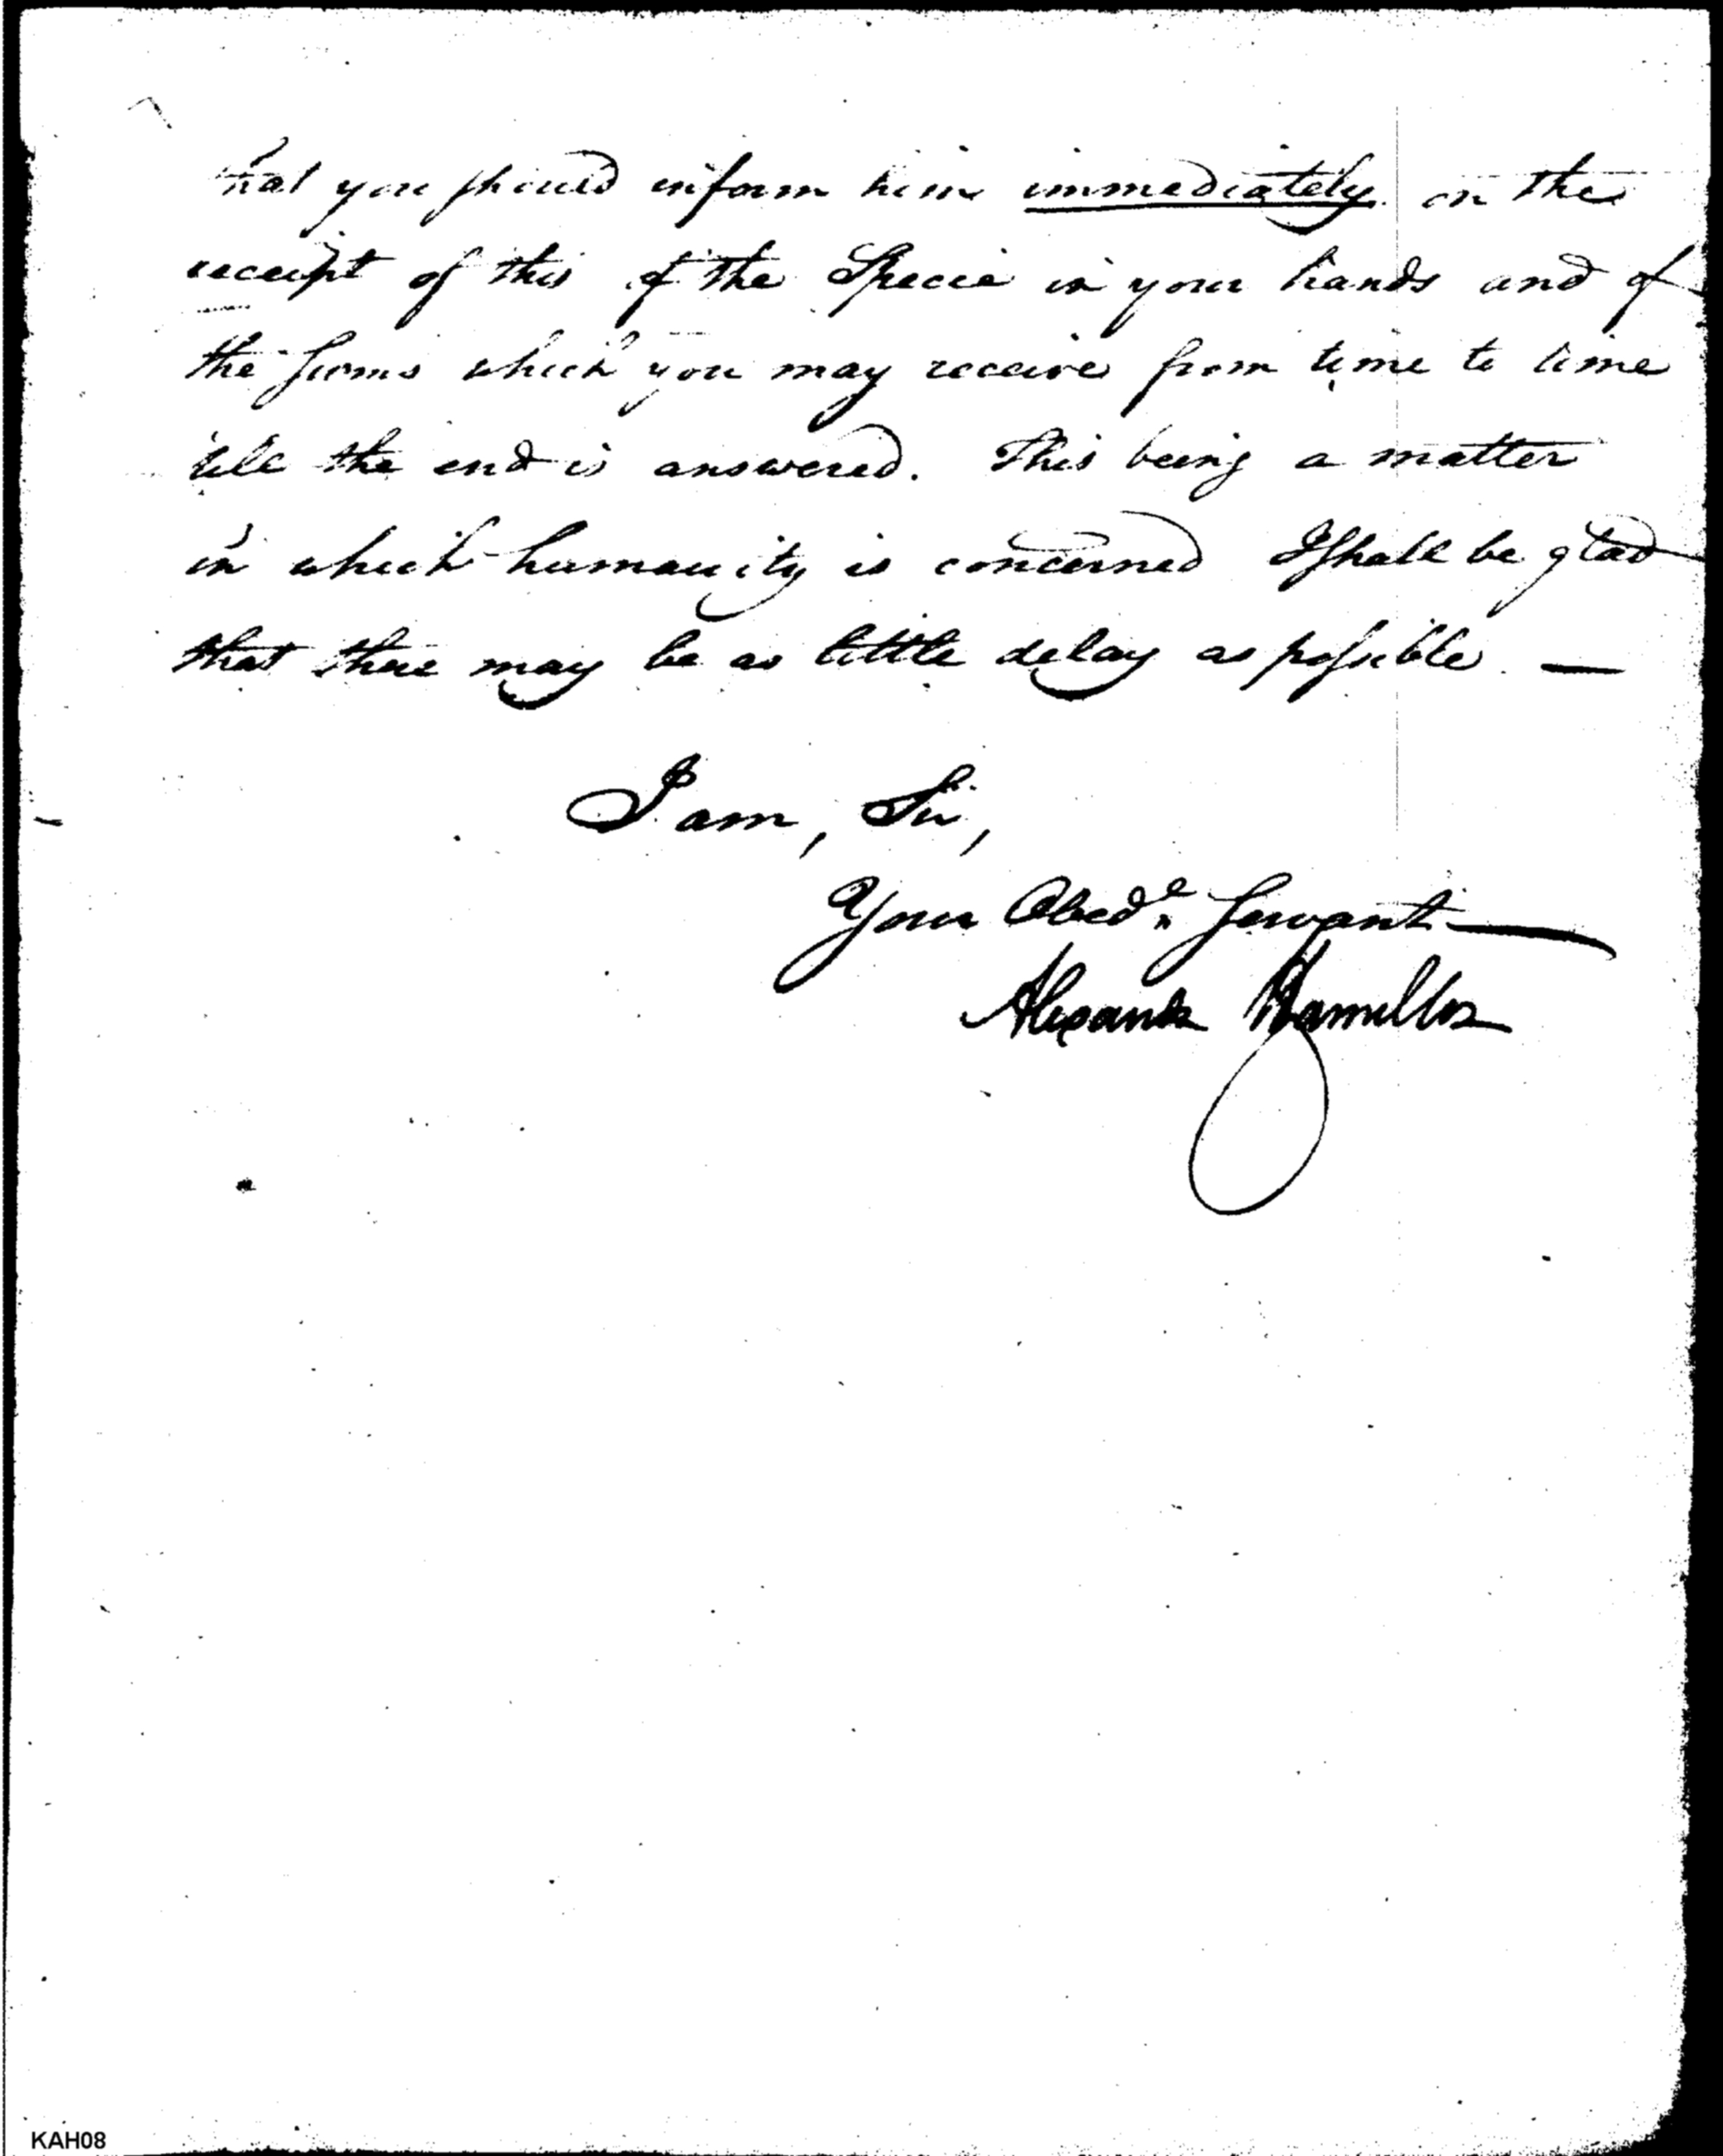 that you should inform him immediately on the
receipt of this of the Specie in your hands and of
the sums which you may receive from time to time
till the end is answered. This being a matter
in which humanity is concerned I shall be glad
that there may be as little delay as possible —
I am, Sir,
Your Obedᵉ Servant
Alexander Hamilton
KAH08